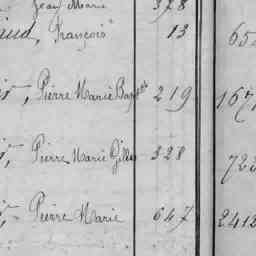 Jean Marie 378
François 13 65
Pierre Marie Bap 219 167
Pierre Marie Gilles 328 72
Pierre Marie 647 2412